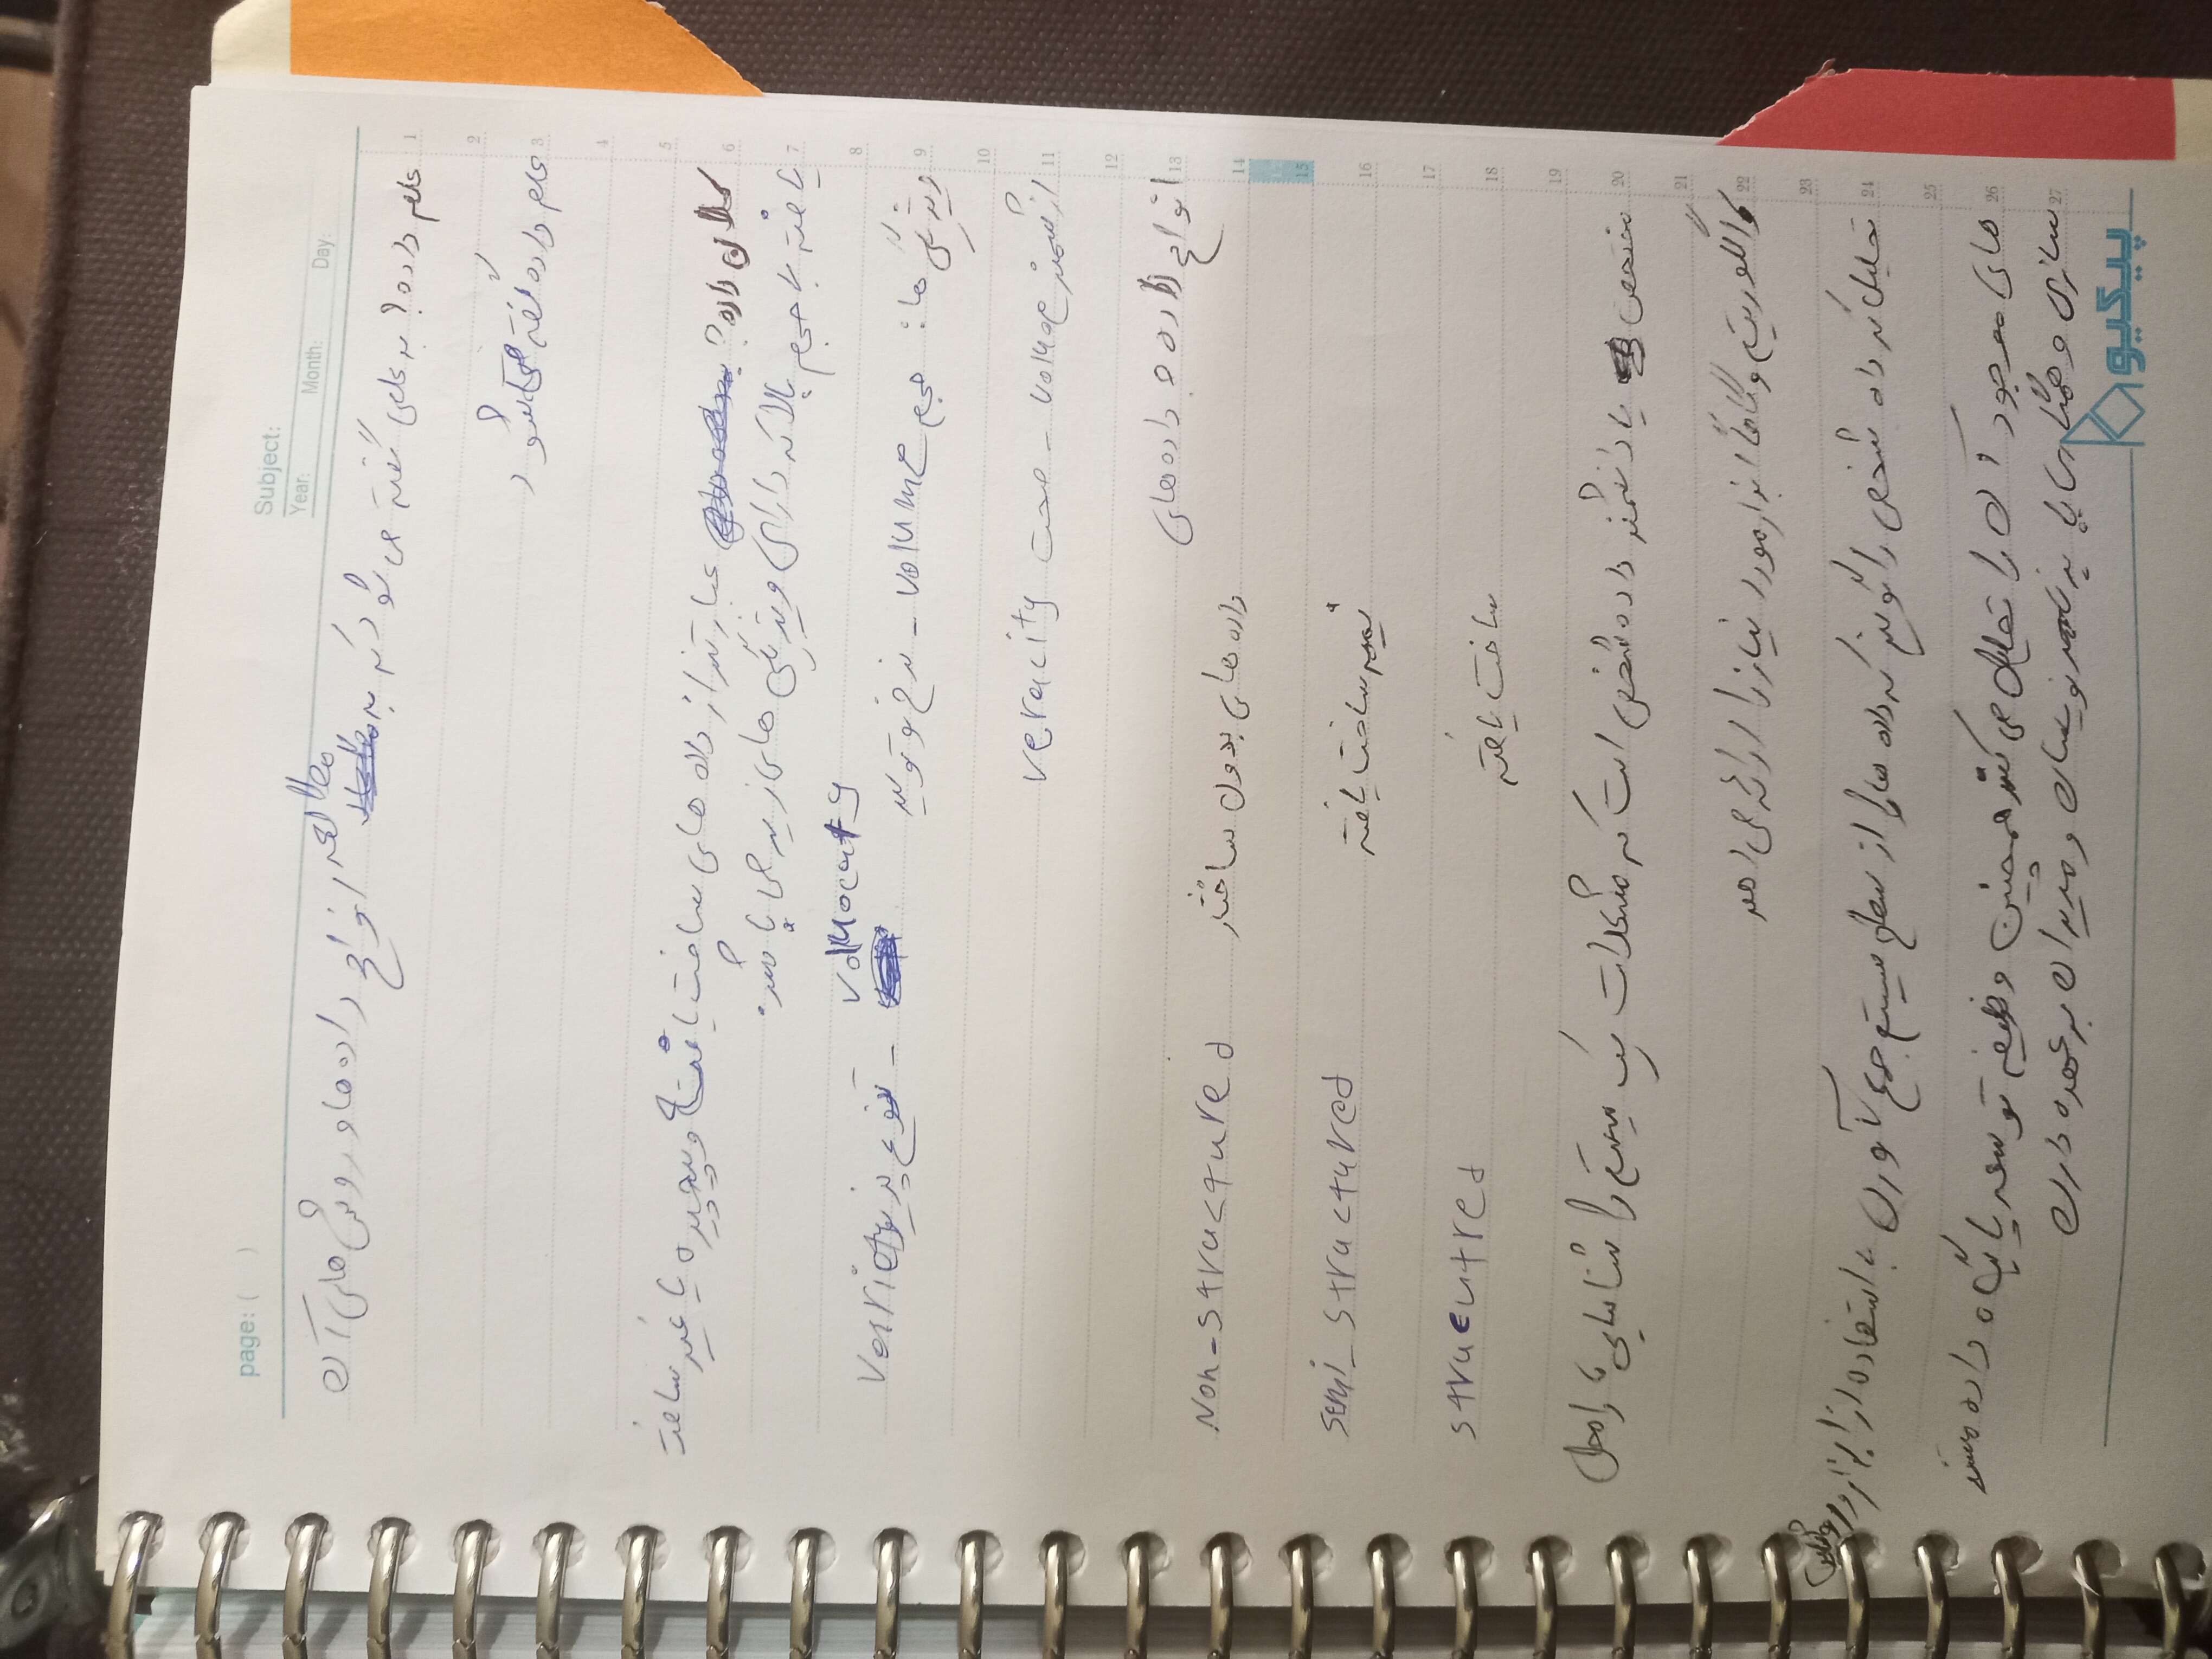 page: ( )
Subject:
Year: Month: Day:
علم داده؟ به علمی گفته می شود که به مطالعه انواع داده ها و روش های آن
علم داده گفته می شود
کلان داده؟ عبارتند از داده های ساخت یافته و پیچیده یا غیر ساخت
یافته با حجم بالا که دارای ویژگی های زیر می باشد.
ویژگی ها: حجم volume - نرخ تولید - تنوع پذیری
ارزشمند - صحت veracity
انواع داده داده های
داده های بدون ساختار Non-structured
نیمه ساخت یافته semi-structured
ساخت یافته strucutred
متخصص یا دانشمند داده شخصی است که مشکلات یک سیستم را شناسایی، راه حل
و الگوریتم و گاهاً ابزار مورد نیاز را ارائه می دهد
تحلیل گر داده شخصی را گویند که داده ها را از سطح سیستم جمع آوری با استفاده از ابزار و
های موجود آن را تحلیل می کند همچنین وظیفه توسعه پایگاه داده مستند
سازی و همکاری با برنامه نویسان و مدیران بر عهده دارد
پیکیو
1
2
3
4
5
6
7
8
9
10
11
12
13
14
15
16
17
18
19
20
21
22
23
24
25
26
27